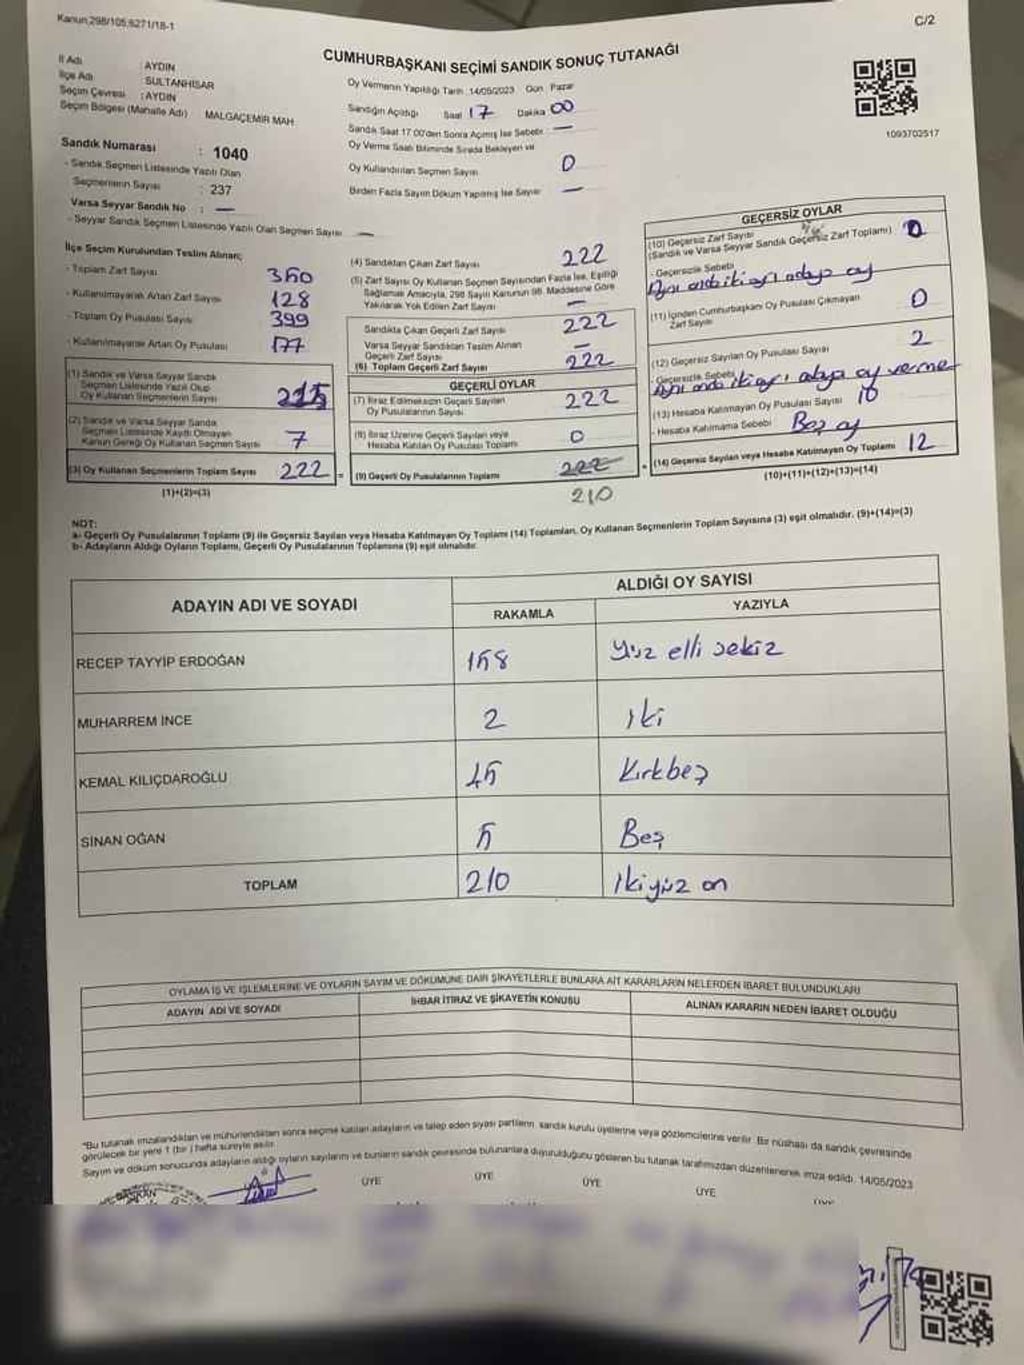 Kanun,298/105,6271/18-1
C/2
CUMHURBAŞKANI SEÇİMİ SANDIK SONUÇ TUTANAĞI
İl Adı : AYDIN
İlçe Adı : SULTANHİSAR
Seçim Çevresi : AYDIN
Seçim Bölgesi (Mahalle Adı) MALGAÇEMİR MAH
Sandık Numarası : 1040
- Sandık Seçmen Listesinde Yazılı Olan
Seçmenlerin Sayısı : 237
Varsa Seyyar Sandık No : —
- Seyyar Sandık Seçmen Listesinde Yazılı Olan Seçmen Sayısı —
Oy Vermenin Yapıldığı Tarih :14/05/2023 Gün Pazar
Sandığın Açıldığı Saat 17 Dakika 00
Sandık Saat 17.00'den Sonra Açılmış İse Sebebi —
Oy Verme Saati Bitiminde Sırada Bekleyen ve
Oy Kullandırılan Seçmen Sayısı 0
Birden Fazla Sayım Döküm Yapılmış İse Sayısı —
1093702517
İlçe Seçim Kurulundan Teslim Alınan;
- Toplam Zarf Sayısı 350
- Kullanılmayarak Artan Zarf Sayısı 128
- Toplam Oy Pusulası Sayısı 399
- Kullanılmayarak Artan Oy Pusulası 177
(1) Sandık ve Varsa Seyyar Sandık
Seçmen Listesinde Yazılı Olup
Oy Kullanan Seçmenlerin Sayısı 215
(2) Sandık ve Varsa Seyyar Sandık
Seçmen Listesinde Kayıtlı Olmayan
Kanun Gereği Oy Kullanan Seçmen Sayısı 7
(3) Oy Kullanan Seçmenlerin Toplam Sayısı 222 =
(1)+(2)=(3)
(4) Sandıktan Çıkan Zarf Sayısı 222
(5) Zarf Sayısı Oy Kullanan Seçmen Sayısından Fazla İse, Eşitliği
Sağlamak Amacıyla, 298 Sayılı Kanunun 98. Maddesine Göre
Yakılarak Yok Edilen Zarf Sayısı —
Sandıkta Çıkan Geçerli Zarf Sayısı 222
Varsa Seyyar Sandıktan Teslim Alınan
Geçerli Zarf Sayısı —
(6) Toplam Geçerli Zarf Sayısı 222
GEÇERLİ OYLAR
(7) İtiraz Edilmeksizin Geçerli Sayılan
Oy Pusulalarının Sayısı 222
(8) İtiraz Üzerine Geçerli Sayılan veya
Hesaba Katılan Oy Pusulası Toplamı 0
(9) Geçerli Oy Pusulalarının Toplamı 222 +
210
GEÇERSİZ OYLAR
(10) Geçersiz Zarf Sayısı
(Sandık ve Varsa Seyyar Sandık Geçersiz Zarf Toplamı) 0
- Geçersizlik Sebebi
Aynı anda iki ayrı adaya oy
(11) İçinden Cumhurbaşkanı Oy Pusulası Çıkmayan
Zarf Sayısı 0
(12) Geçersiz Sayılan Oy Pusulası Sayısı 2
- Geçersizlik Sebebi
Aynı anda iki ayrı adaya oy verme
(13) Hesaba Katılmayan Oy Pusulası Sayısı 10
- Hesaba Katılmama Sebebi Boş oy
(14) Geçersiz Sayılan veya Hesaba Katılmayan Oy Toplamı 12
(10)+(11)+(12)+(13)=(14)
NOT:
a- Geçerli Oy Pusulalarının Toplamı (9) ile Geçersiz Sayılan veya Hesaba Katılmayan Oy Toplamı (14) Toplamları, Oy Kullanan Seçmenlerin Toplam Sayısına (3) eşit olmalıdır. (9)+(14)=(3)
b- Adayların Aldığı Oyların Toplamı, Geçerli Oy Pusulalarının Toplamına (9) eşit olmalıdır.
ADAYIN ADI VE SOYADI
ALDIĞI OY SAYISI
RAKAMLA YAZIYLA
RECEP TAYYİP ERDOĞAN 158 Yüz elli sekiz
MUHARREM İNCE 2 İki
KEMAL KILIÇDAROĞLU 45 Kırkbeş
SİNAN OĞAN 5 Beş
TOPLAM 210 İkiyüz on
OYLAMA İŞ VE İŞLEMLERİNE VE OYLARIN SAYIM VE DÖKÜMÜNE DAİR ŞİKAYETLERLE BUNLARA AİT KARARLARIN NELERDEN İBARET BULUNDUKLARI
ADAYIN ADI VE SOYADI İHBAR İTİRAZ VE ŞİKAYETİN KONUSU ALINAN KARARIN NEDEN İBARET OLDUĞU
*Bu tutanak imzalandıktan ve mühürlendikten sonra seçime katılan adayların ve talep eden siyasi partilerin sandık kurulu üyelerine veya gözlemcilerine verilir. Bir nüshası da sandık çevresinde
görülecek bir yere 1 (bir) hafta süreyle asılır.
Sayım ve döküm sonucunda adayların aldığı oyların sayılarını ve bunların sandık çevresinde bulunanlara duyurulduğunu gösteren bu tutanak tarafımızdan düzenlenerek imza edildi. 14/05/2023
BAŞKAN ÜYE ÜYE ÜYE ÜYE ÜYE